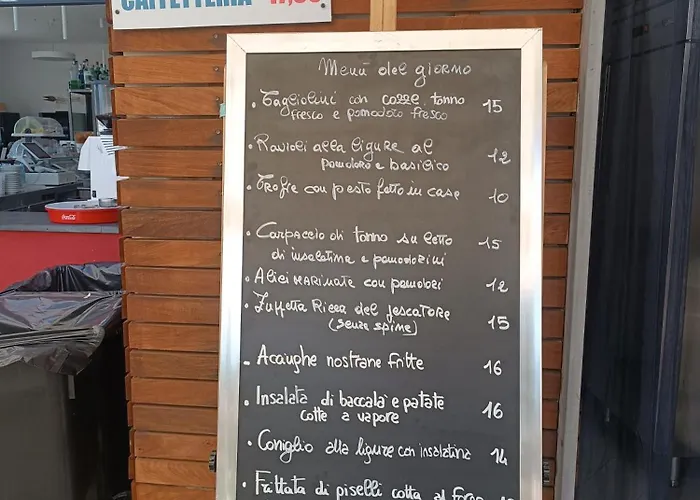 CAFFETTERIA
Menù del giorno
• Tagliolini con cozze, tonno 15
fresco e pomodoro fresco
• Ravioli alla ligure al 12
pomodoro e basilico
• Trofie con pesto fatto in case 10
• Carpaccio di tonno su letto 15
di insalatina e pomodorini
• Alici marinate con pomodori 12
• Zuppetta Ricca del pescatore 15
(senza spine)
- Acciughe nostrane fritte 16
• Insalata di baccalà e patate 16
cotte a vapore
• Coniglio alla ligure con insalatina 14
• Frittata di piselli cotta al forno
Coca-Cola